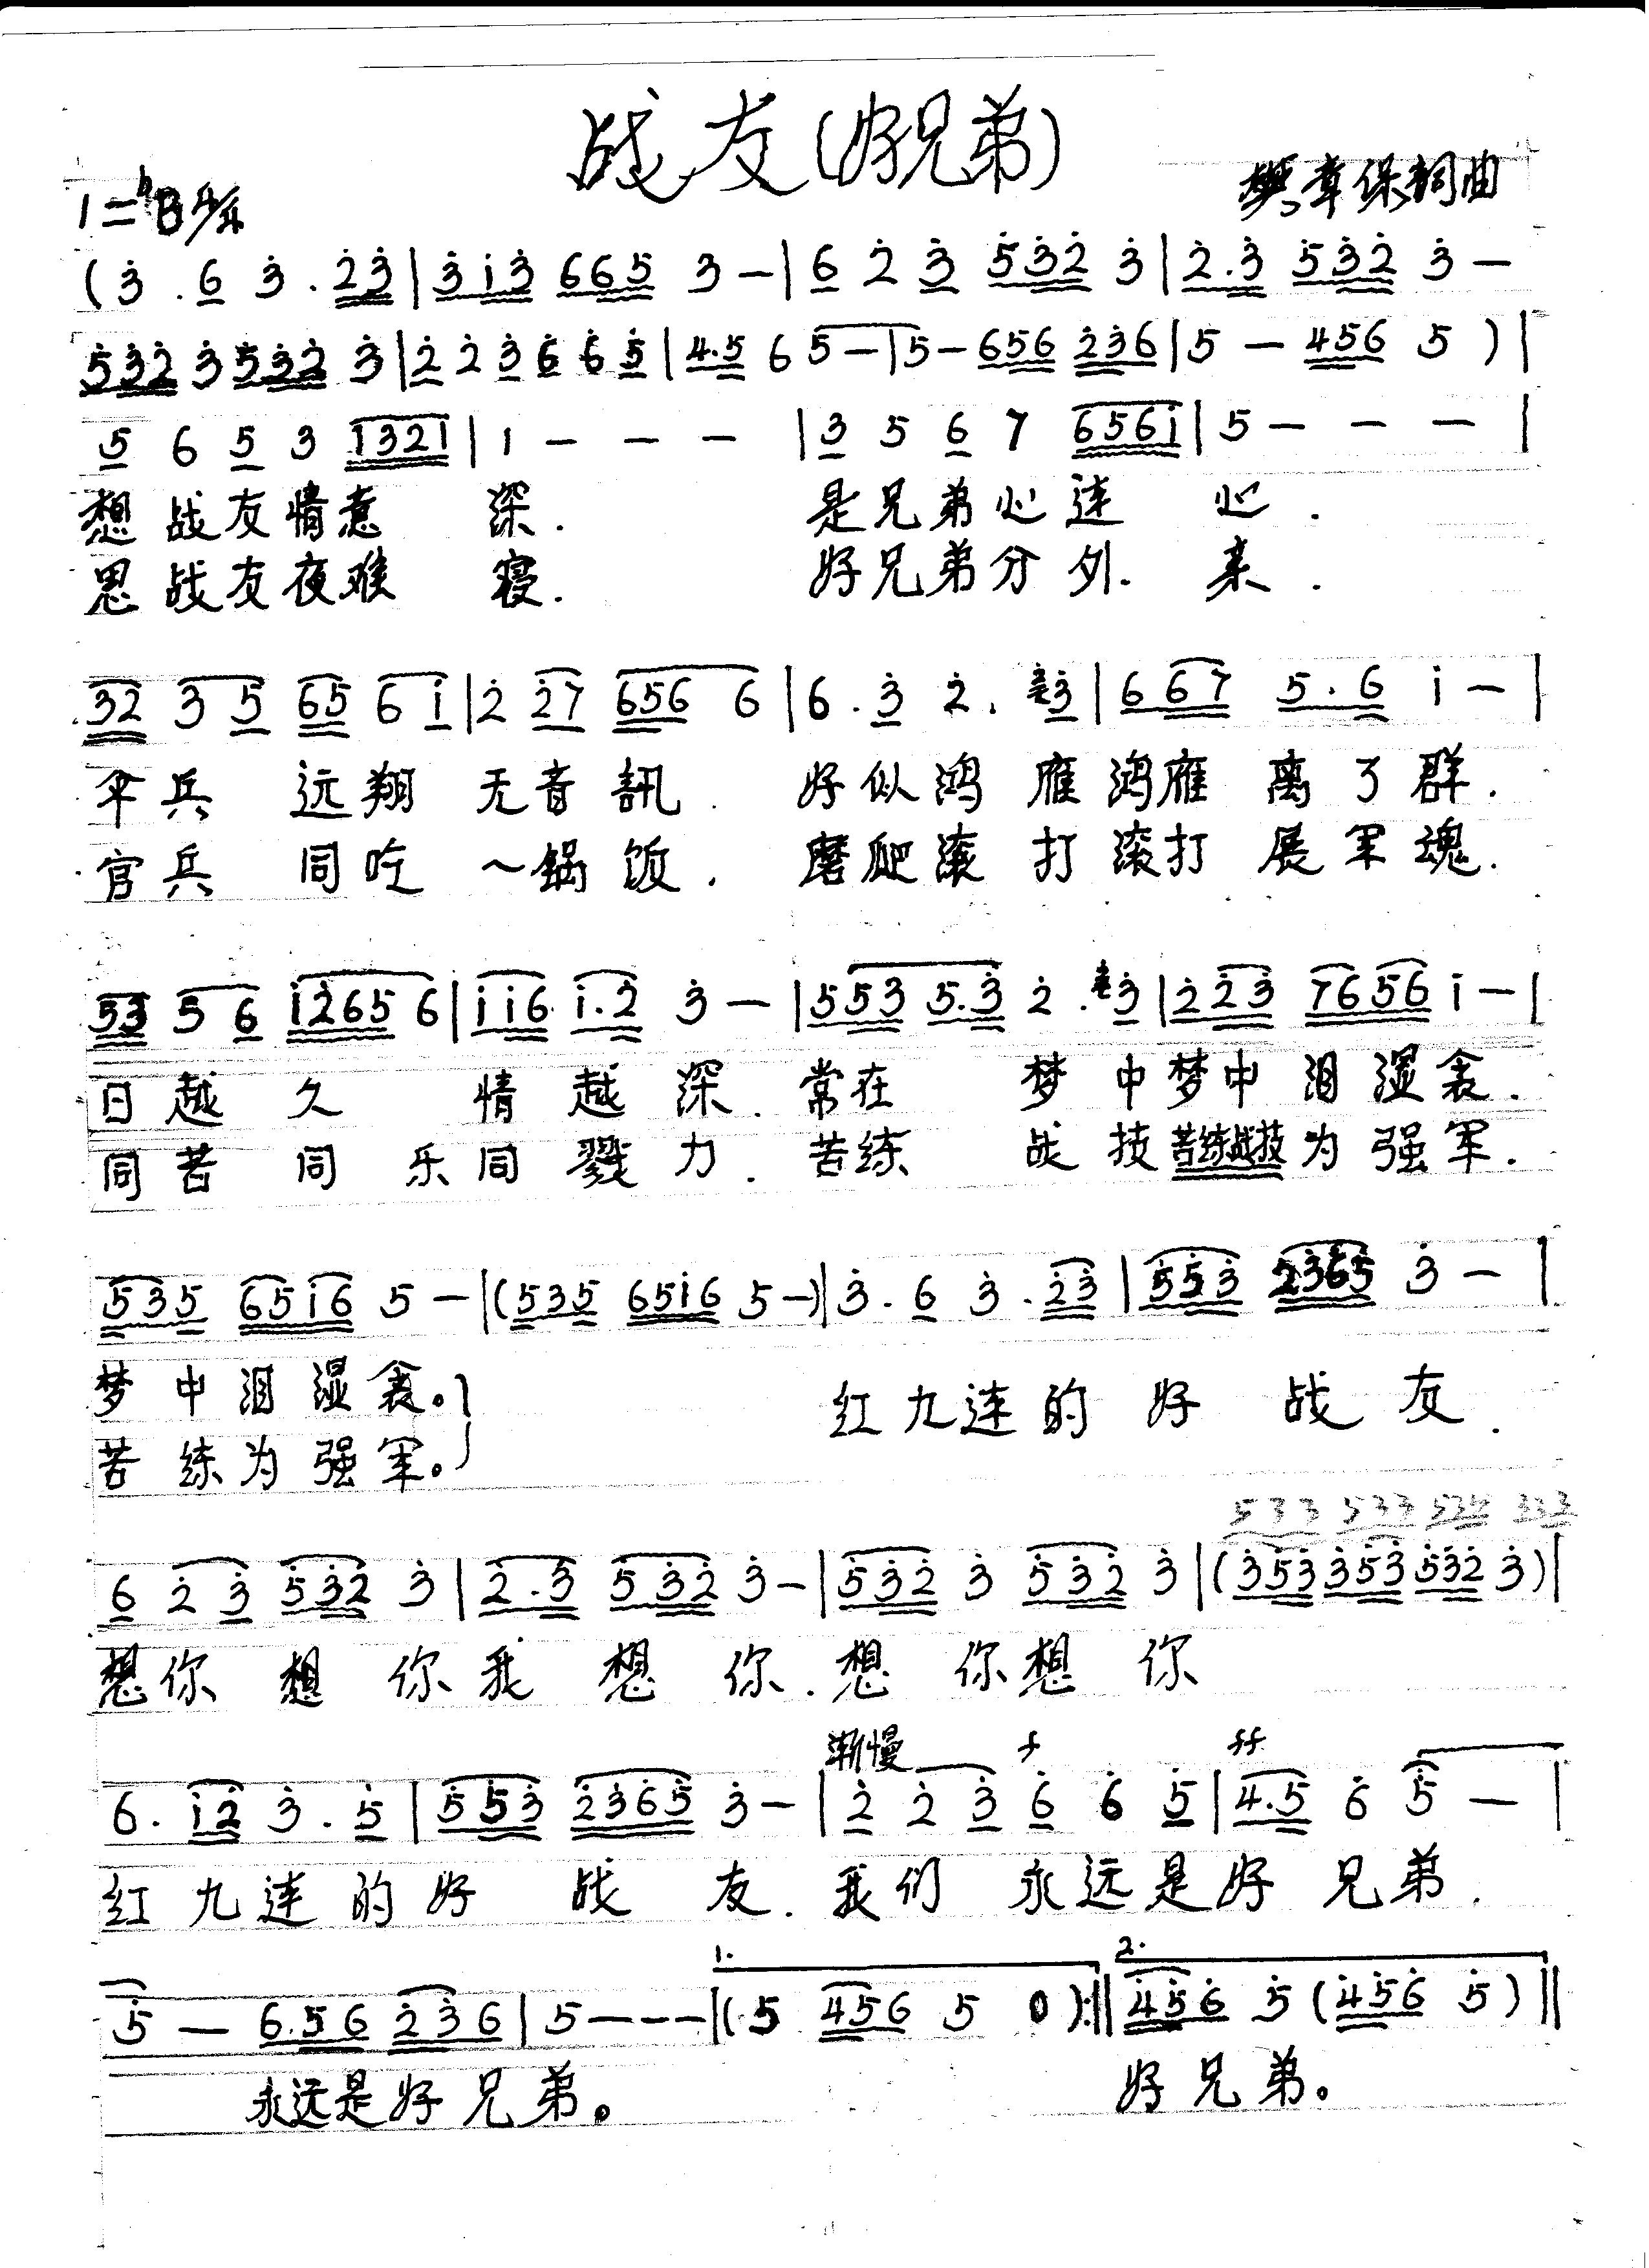 战友(好兄弟)
1=♭B 4/4
樊章保詞曲
(3̇ . 6 3̇ . 2̇3̇ | 3̇i3̇ 665 3 — | 6 2̇ 3̇ 5̇3̇2̇ 3̇ | 2̇.3̇ 5̇3̇2̇ 3̇ —
5̇3̇2̇ 3̇ 5̇3̇2̇ 3̇ | 2̇ 2̇ 3̇ 6̇ 6̇ 5̇ | 4.5 6 5 — | 5 — 656 2̇3̇6 | 5 — 456 5 ) |
5 6 5 3 1321 | 1 — — — | 3 5 6 7 656i | 5 — — — |
想战友情意 深. 是兄弟心连 心.
思战友夜难 寝. 好兄弟分外. 亲.
32 3 5 65 6 i | 2̇ 2̇7 656 6 | 6 . 3̇ 2̇ . 3̇ | 667 5.6 i — |
伞兵 远翔 无音訊. 好似鸿 雁鸿雁 离了群.
官兵 同吃 一锅饭. 磨爬滚 打滚打 展军魂.
53 5 6 i2̇65 6 | ii6 i.2̇ 3̇ — | 553̇ 5.3̇ 2̇ . 3̇ | 2̇2̇3̇ 7656 i — |
日越久 情越深. 常在 梦中梦中 泪湿衾.
同苦同乐同戮力. 苦练 战技苦练战技为强军.
535 65i6 5 — | (535 65i6 5 —) | 3̇ . 6 3̇ . 2̇3̇ | 5̇5̇3̇ 2̇3̇6̇5̇ 3̇ — |
梦中泪湿衾。 红九连的好战友.
苦练为强军。
533 533 532 333
6 2̇ 3̇ 5̇3̇2̇ 3̇ | 2̇.3̇ 5̇3̇2̇ 3̇ — | 5̇3̇2̇ 3̇ 5̇3̇2̇ 3̇ | (3̇5̇3̇ 3̇5̇3̇ 5̇3̇2̇ 3̇) |
想你想你我想你.想你想你
渐慢 f ff
6 . i2̇ 3̇ . 5̇ | 5̇5̇3̇ 2̇3̇6̇5̇ 3̇ — | 2̇ 2̇ 3̇ 6̇ 6̇ 5̇ | 4̇.5̇ 6̇ 5̇ — |
红九连的好战友.我们永远是好兄弟.
1. 2.
5̇ — 6.56 2̇3̇6 | 5 — — — | (5 456 5 0) :|| 4̇5̇6̇ 5̇ (4̇5̇6̇ 5̇) ||
永远是好兄弟。 好兄弟。